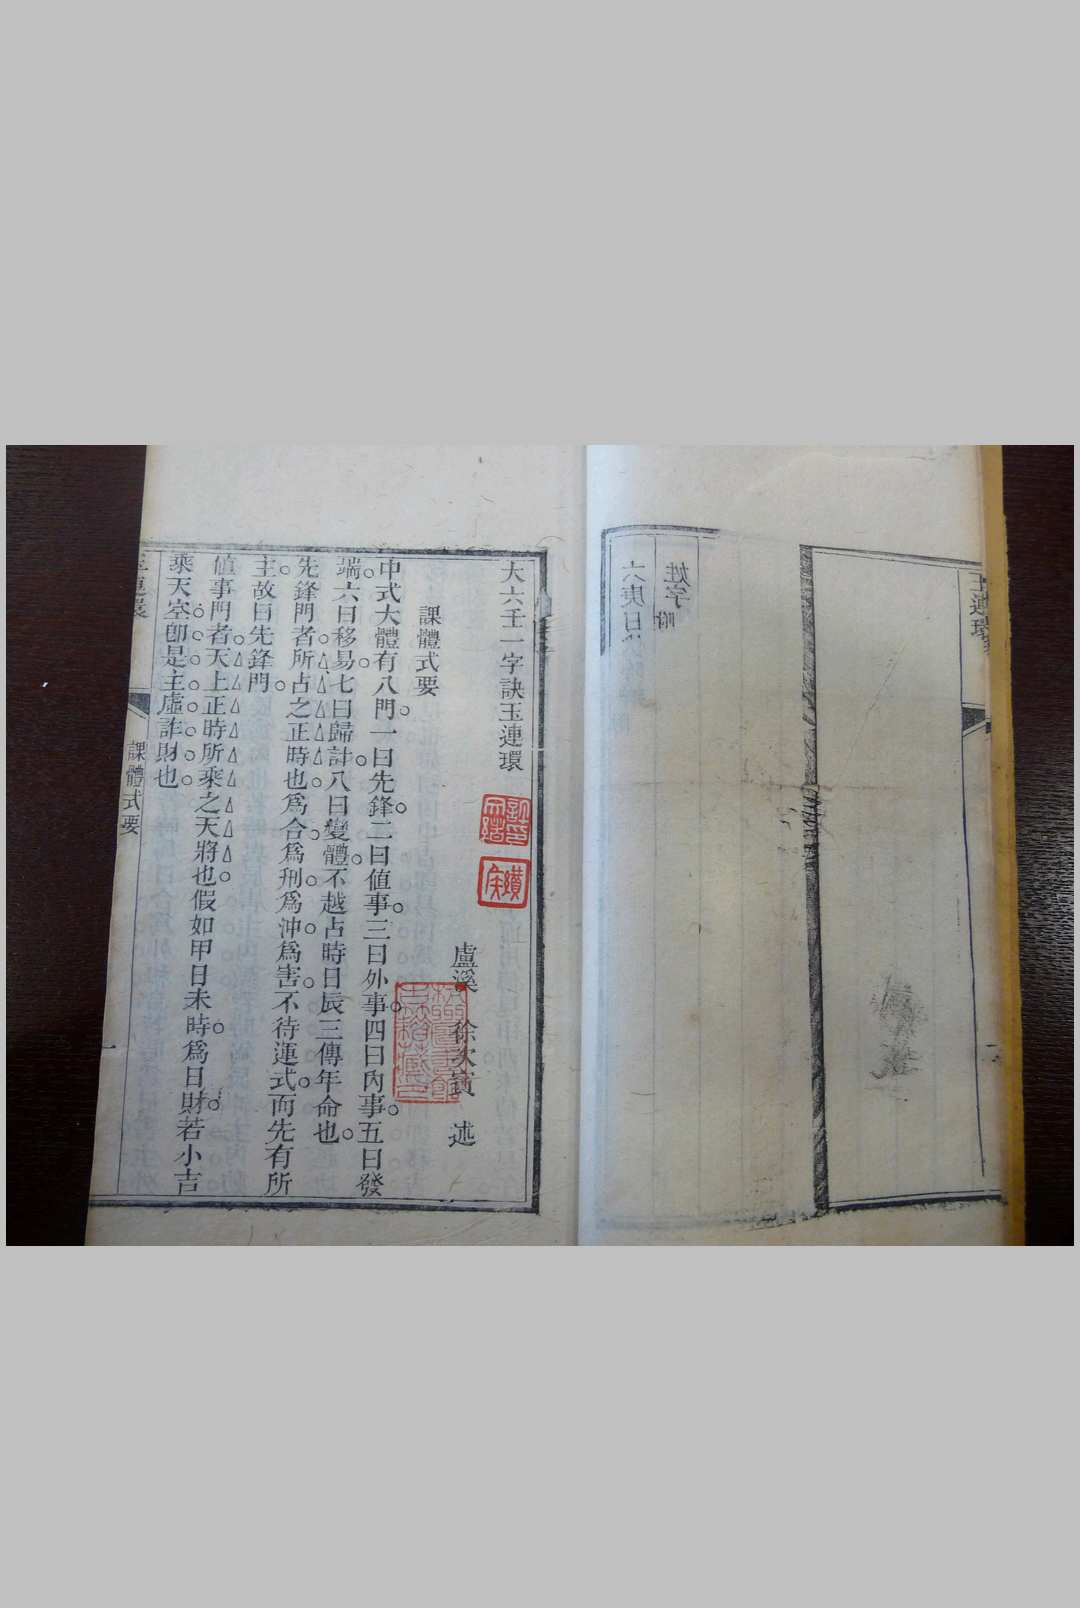 姓字附
六庚日
大六壬一字訣玉連環
盧溪 徐次賓 述
課體式要
中式大體有八門一曰先鋒二曰值事三曰外事四曰內事五曰發
端六曰移易七曰歸計八曰變體不越占時日辰三傳年命也
先鋒門者所占之正時也爲合爲刑爲沖爲害不待運式而先有所
主故曰先鋒門
值事門者天上正時所乘之天將也假如甲日未時爲日財若小吉
乘天空卽是主虛詐財也
課體式要
一